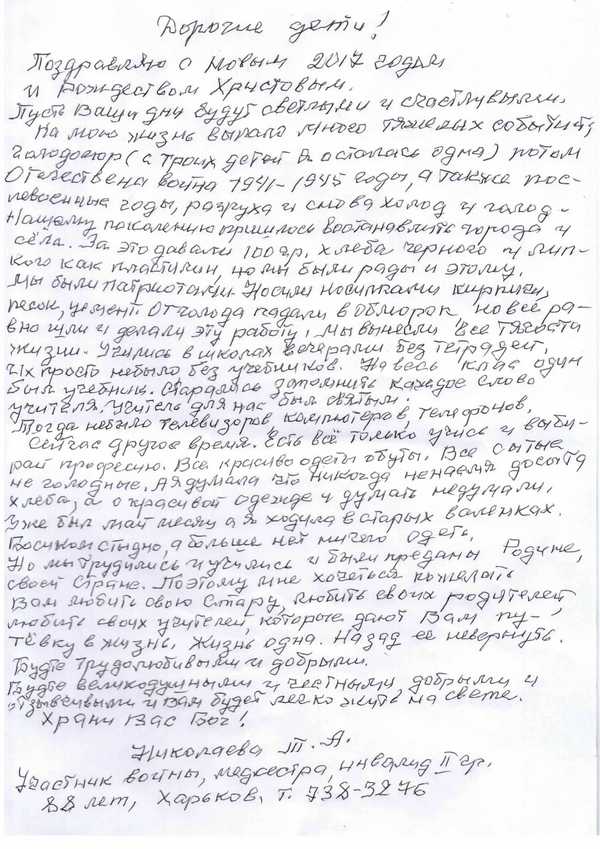 Дорогие дети!
Поздравляю с Новым 2017 годом
и Рождеством Христовым.
Пусть Ваши дни будут светлыми и счастливыми.
На мою жизнь выпало много тяжелых событий;
голодомор (с троих детей я осталась одна) потом
Отечествена война 1941-1945 годы, а также пос-
левоенные годы, разруха и снова холод и голод.
Нашему поколению пришлось востанавлить города и
сёла. За это давали 100 гр. хлеба черного и лип-
кого как пластилин, но мы были рады и этому.
Мы были патриотами. Носили носилками кирпичи,
песок, цемент. От голода падали в обморок но всё ра-
вно шли и делали эту работу, мы вынесли все тягости
жизни. Учились в школах вечерами без тетрадей,
их просто небыло без учебников. На весь клас один
был учебник. Старались запомнить каждое слово
учителя. Учитель для нас был святым.
Тогда небыло телевизоров, компютеров, телефонов.
Сейчас другое время. Есть всё только учись и выби-
рай професию. Все красиво одеты обуты. Все сытые
не голодные. А я думала что никогда ненаемся досыта
хлеба, а о красивой одежде и думать недумали.
Уже был май месяц а я ходила в старых валенках.
Босиком стыдно, а больше нет ничего одеть.
Но мы трудились и учились и были преданы Родине,
своей стране. Поэтому мне хочеться пожелать
Вам любить свою Страну, любить своих родителей
любить своих учителей, которые дают Вам пу-
тёвку в жизнь. Жизнь одна. Назад ее невернуть.
Будте трудолюбивыми и добрыми.
Будте великодушными и честными добрыми и
отзывчивыми и Вам будет легко жить на свете.
Храни Вас Бог!
Николаева Т. А.
Участник войны, медсестра, инвалид II гр.
88 лет, Харьков, т. 738-3276